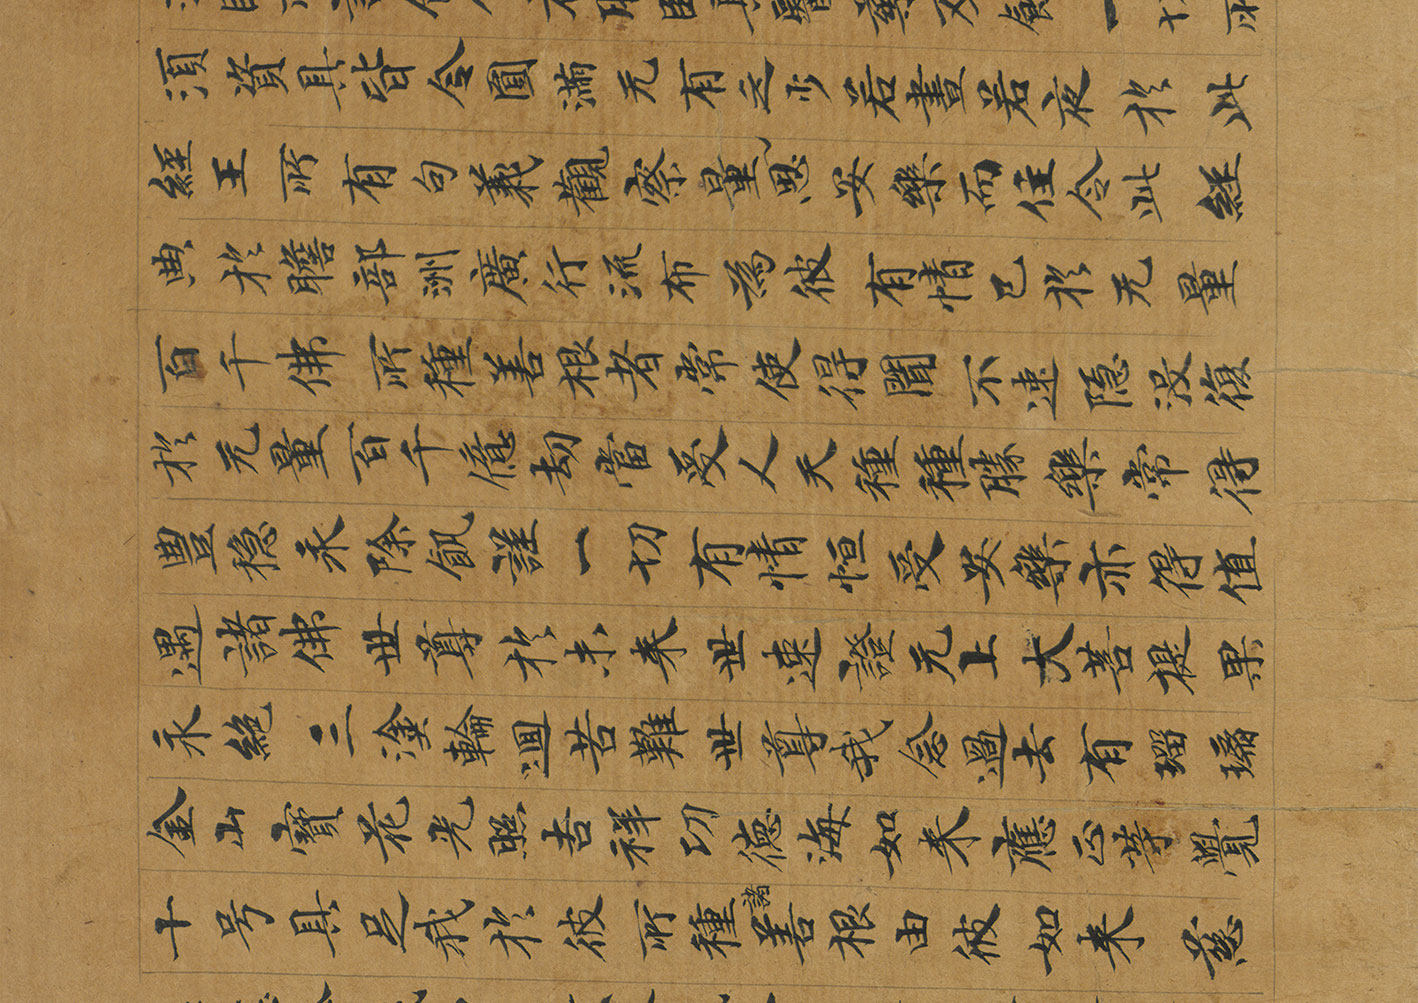 須資具皆令圓滿无有乏少若晝若夜於此
經王所有句義觀察量思安樂而住令此經
典於瞻部洲廣行流布為彼有情已於无量
百千佛所種善根者常使得聞不速隱没復
於无量百千億劫當受人天種種勝樂常得
豊稔永除飢謹一切有情恒受安樂亦得值
遇諸佛世尊於未来世速證无上大菩提果
永絕三塗輪迴苦難世尊我念過去有瑠璃
金山寶花光照吉祥功德海如来應正等覺
十号具足我於彼所種諸善根由彼如来慈